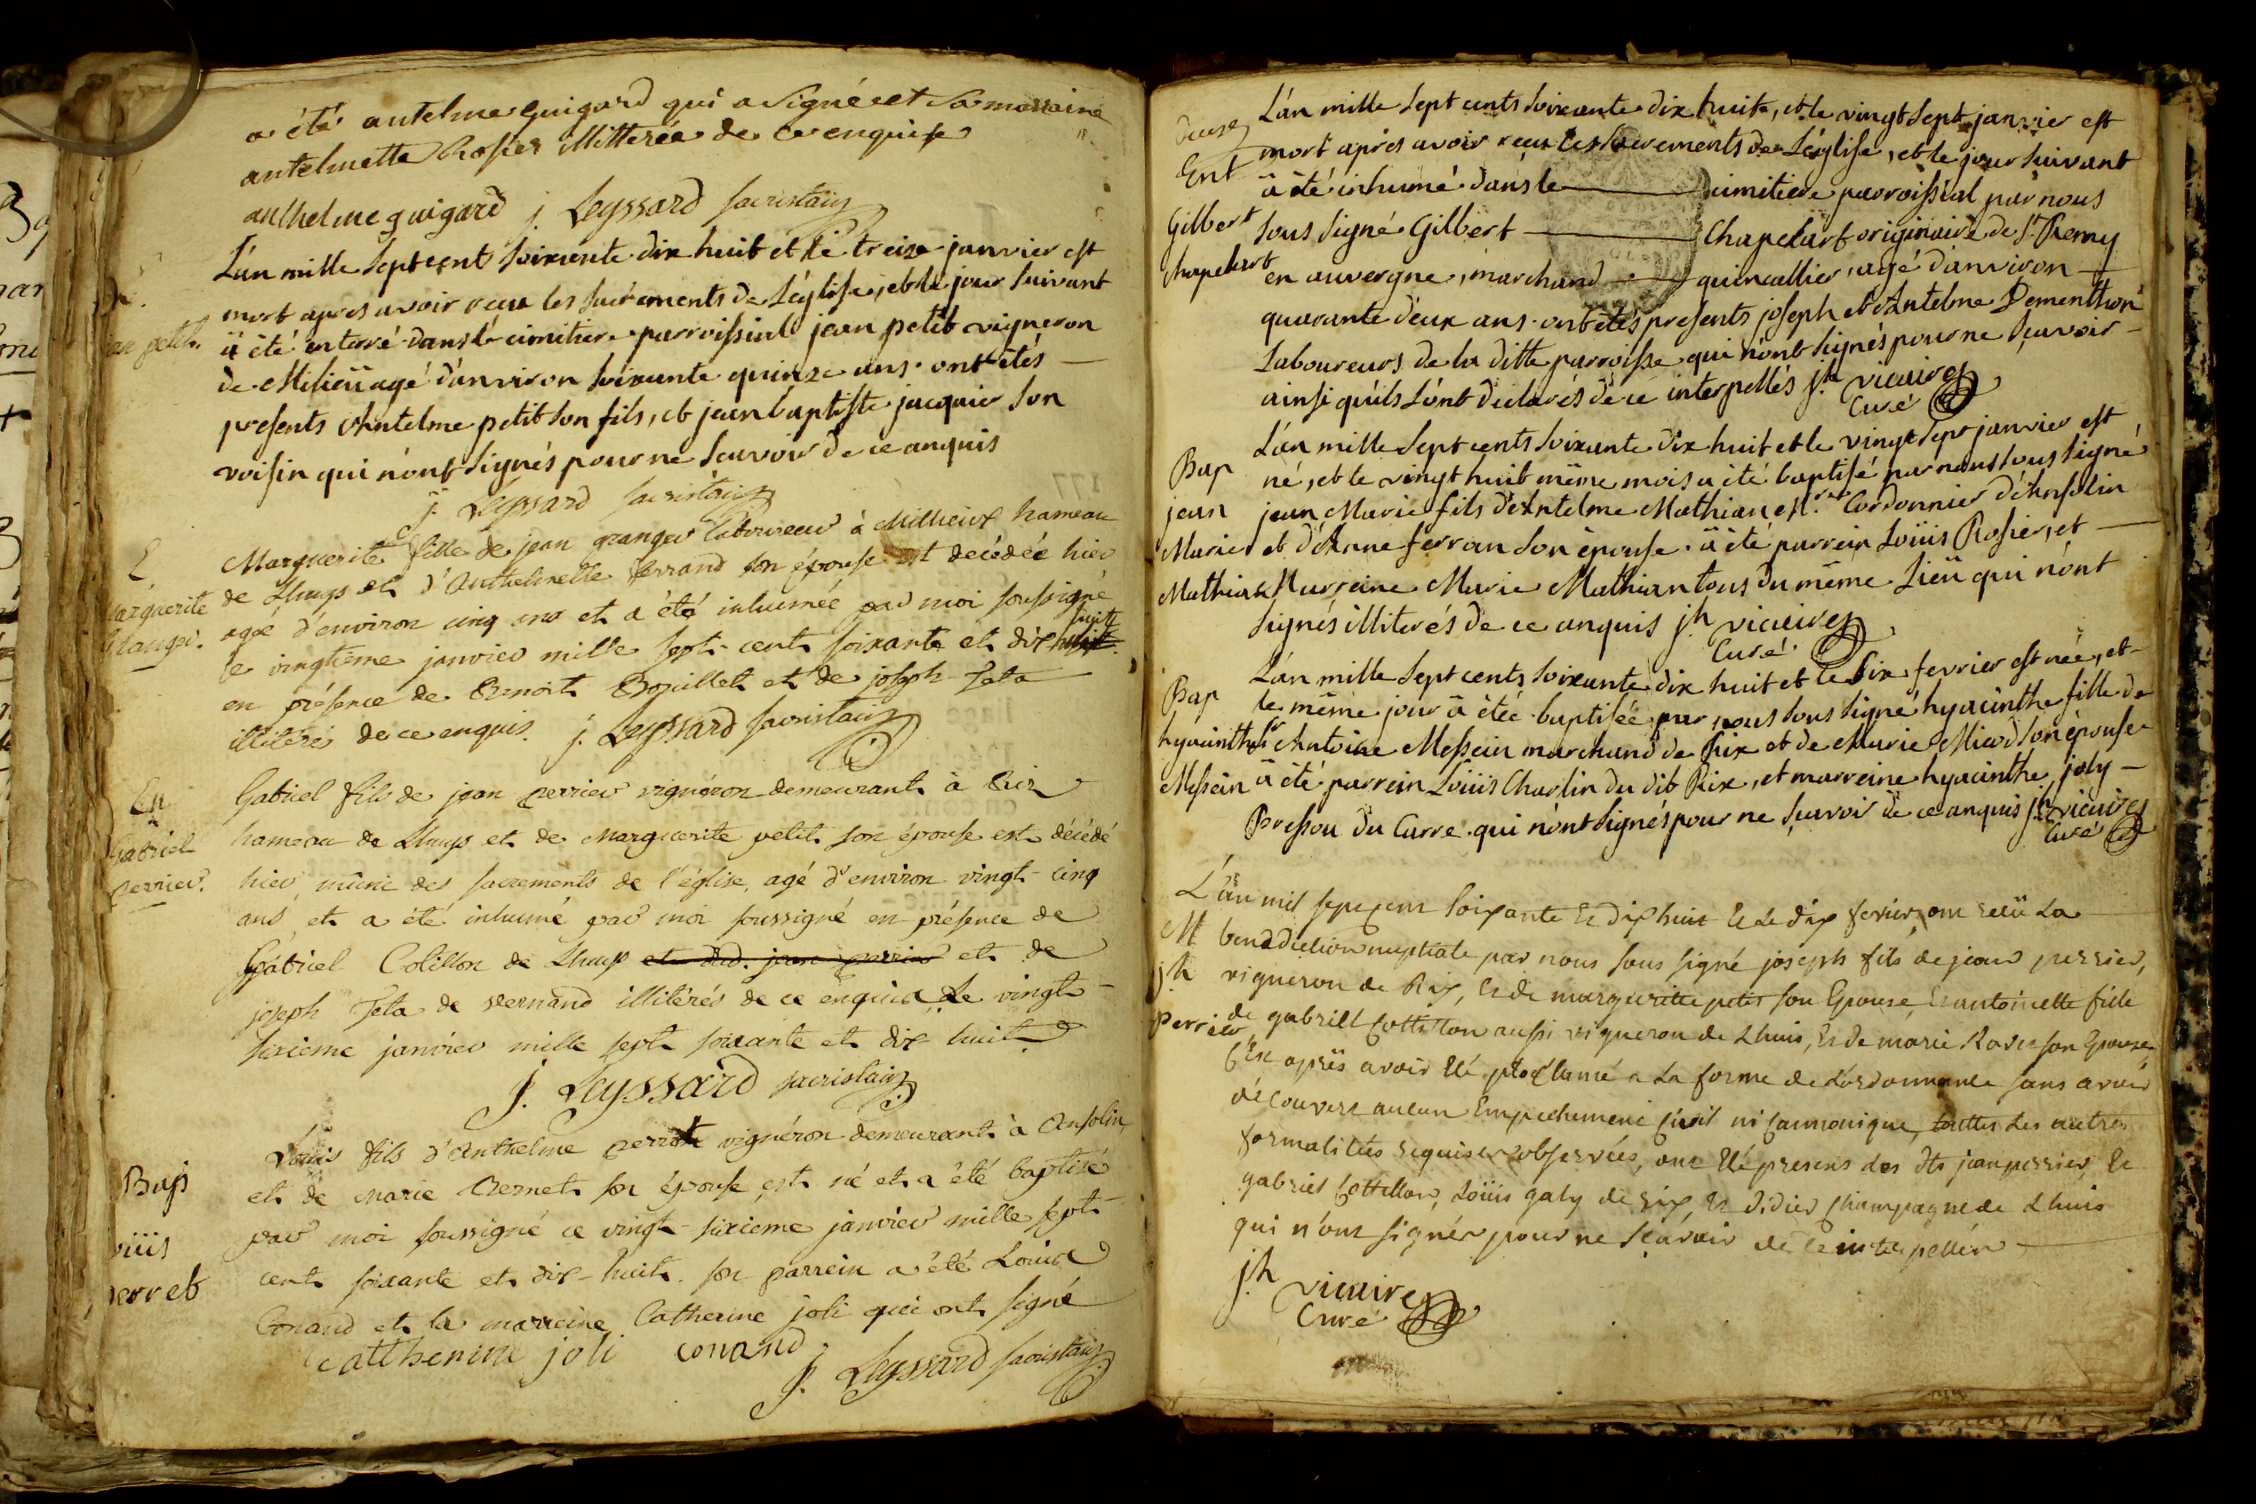 a été antelme guigard qui a signé et sa marraine
antelmette Rosier illitterée de ce enquise
anthelme guigard j. Leyssard sacristain
L'an mille sept cent soixante dix huit et le treize janvier est
mort apres avoir reçu les sacrements de L'église, et le jour suivant
à été enterré dans le cimitiere parroissial jean petit vigneron
de Milieu agé d'anviron soixante quinze ans. ont étés
presents Antelme petit son fils, et jean baptiste jacquier son
voisin qui n'ont signés pour ne scavoir de ce anquis
j. Leyssard sacristain
jean petit.
E
Marguerite
Granger.
Marguerite fille de jean granger laboureur à Millieux hameau
de Lhuys et d'Anthelmette ferrand son épouse est decédée hier
agée d'environ cinq ans et a été inhumée par moi soussigné
le vingtieme janvier mille sept-cent soixante et dix huit
en présence de Benoit Bozaillet et de joseph Teta
illitérés de ce enquis. j. Leyssard sacristain
En
Gabriel
perrier.
Gabriel fils de jean perrier vignéron demeurant à Rix
hameau de Lhuys et de Marguerite petit son épouse est décédé
hier, mûni des sacrements de l'église, agé d'environ vingt-cinq
ans, et a été inhumé par moi soussigné en présence de
Gabriel Cotillon de Lhuys et de
joseph Teta de vernand illitérés de ce enquis Le vingt-
sixieme janvier mille sept soixante et dix huit
j. Leyssard sacristain
Bap
Loüis
perret
Louis fils d'Anthelme perret vignéron demeurant à Ansolin
et de Marie Bernet son épouse est né et a été baptisé
par moi soussigné ce vingt-sixieme janvier mille sept-
cent soixante et dix-huit. son parrein a été Louis
Conand et la marreine Catherine joli qui ont signé
catthenine joli conand
j. Leyssard sacristain
Ent
Gilbert
Chapelart
L'an mille sept cents soixante dix huit, et le vingt sept janvier est
mort aprés avoir reçu les sacrements de L'église, et le jour suivant
à été inhumé dans le cimitiere parroissial par nous
sous signé Gilbert Chapelart originaire de St. Remy
en auvergne, marchand quincallier, agé d'anviron
quarante d'eux ans. ont étés presents joseph et Antelme Dementhon
Laboureurs de la ditte parroisse qui n'ont signés pour ne sçavoir
ainsi qu'ils L'ont declarés de ce interpellés jh. vicaire
Curé
Bap
jean
Marie
Mathian
L'an mille sept cents soixante dix huit et le vingt sept janvier est
né, et le vingt huit même mois a été baptisé par nous sous signé
jean Marie fils d'Antelme Mathian Mr. Cordonnier d'Ansolin
et d'Anne ferran son épouse. à été parrein Loüis Rosier, et
Marreine Marie Mathian tous du même Lieü qui n'ont
signés illiterés de ce anquis jh vicaire
Curé.
Bap
hyacinthe
Messein
L'an mille sept cents soixante dix huit et le six fevrier est née, et
le même jour à étée baptisée par nous sous signé hyacinthe fille de
sr. Antoine Messein marchand de Rix et de Marie Miend son épouse
à été parrein Loüis Charlin du dit Rix, et marreine hyacinthe joly
Pressou du Carre. qui n'ont signés pour ne sçavoir de ce anquis jh. vicaire
Curé
M
jh
Perrier
L'an mil sept cent soixante Et dix huit Et Le dix fevrier, ont reçü La
benediction nuptiale par nous sous signé joseph fils de jean perrier,
vigneron de Rix, Et de margueritte petit son Epouse, Et antoinette fille
de gabriel Cottillon aussi vigneron de Lhuis, Et de marie Rosier son Epouse
C'est après avoir Eté proclamé a La forme de L'ordonnance sans avoir
découvert aucun Empechement Civil ni Cannonique, touttes Les autres
formalitées requises observées, ont Eté presens des dts jean perrier, Et
gabriel Cottillon, Loüis galy de rix, Et didier Champagne de Lhuis
qui n'ont signés pour ne sçavoir de ce interpellés
jh vicaire
Curé